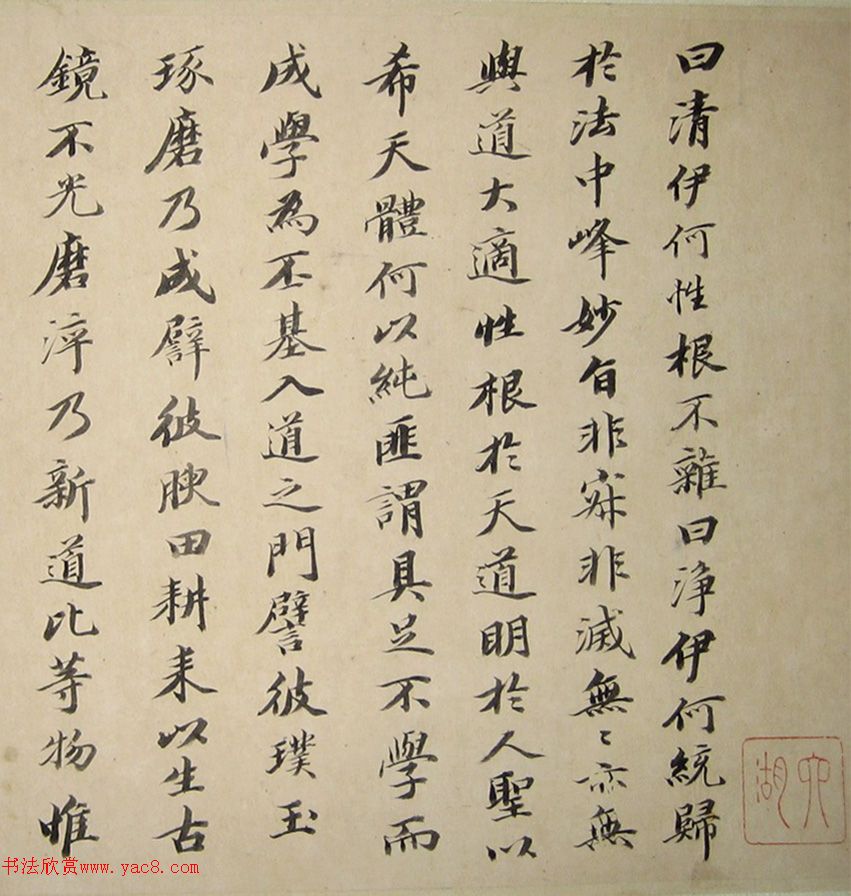 曰清伊何性根不雜曰淨伊何統歸
於法中峰妙旨非寂非滅無〻亦無
與道大適性根於天道明於人聖以
希天體何以純匪謂具足不學而
成學為丕基入道之門譬彼璞玉
琢磨乃成譬彼腴田耕耒以生古
鏡不光磨淬乃新道比等物惟
書法欣赏www.yac8.com